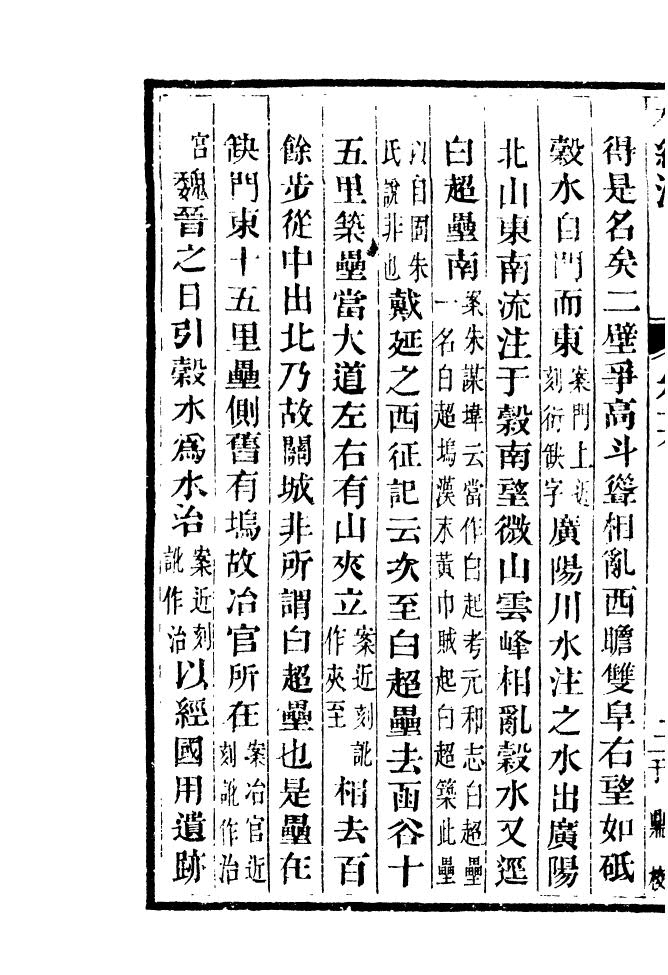 得是名矣二壁爭高斗聳相亂西瞻雙阜右望如砥
穀水自門而東案門上近刻衍缺字廣陽川水注之水出廣陽
北山東南流注于穀南望微山雲峰相亂穀水又逕
白超壘南案朱謀㙔云當作白起考元和志白超壘一名白超塢漢末黃巾賊起白超築此壘
以自固朱氏說非也戴延之西征記云次至白超壘去函谷十
五里築壘當大道左右有山夾立案近刻訛作夾至相去百
餘步從中出北乃故關城非所謂白超壘也是壘在
缺門東十五里壘側舊有塢故冶官所在案冶官近刻訛作治
宮魏晉之日引穀水為水冶案近刻訛作治以經國用遺跡